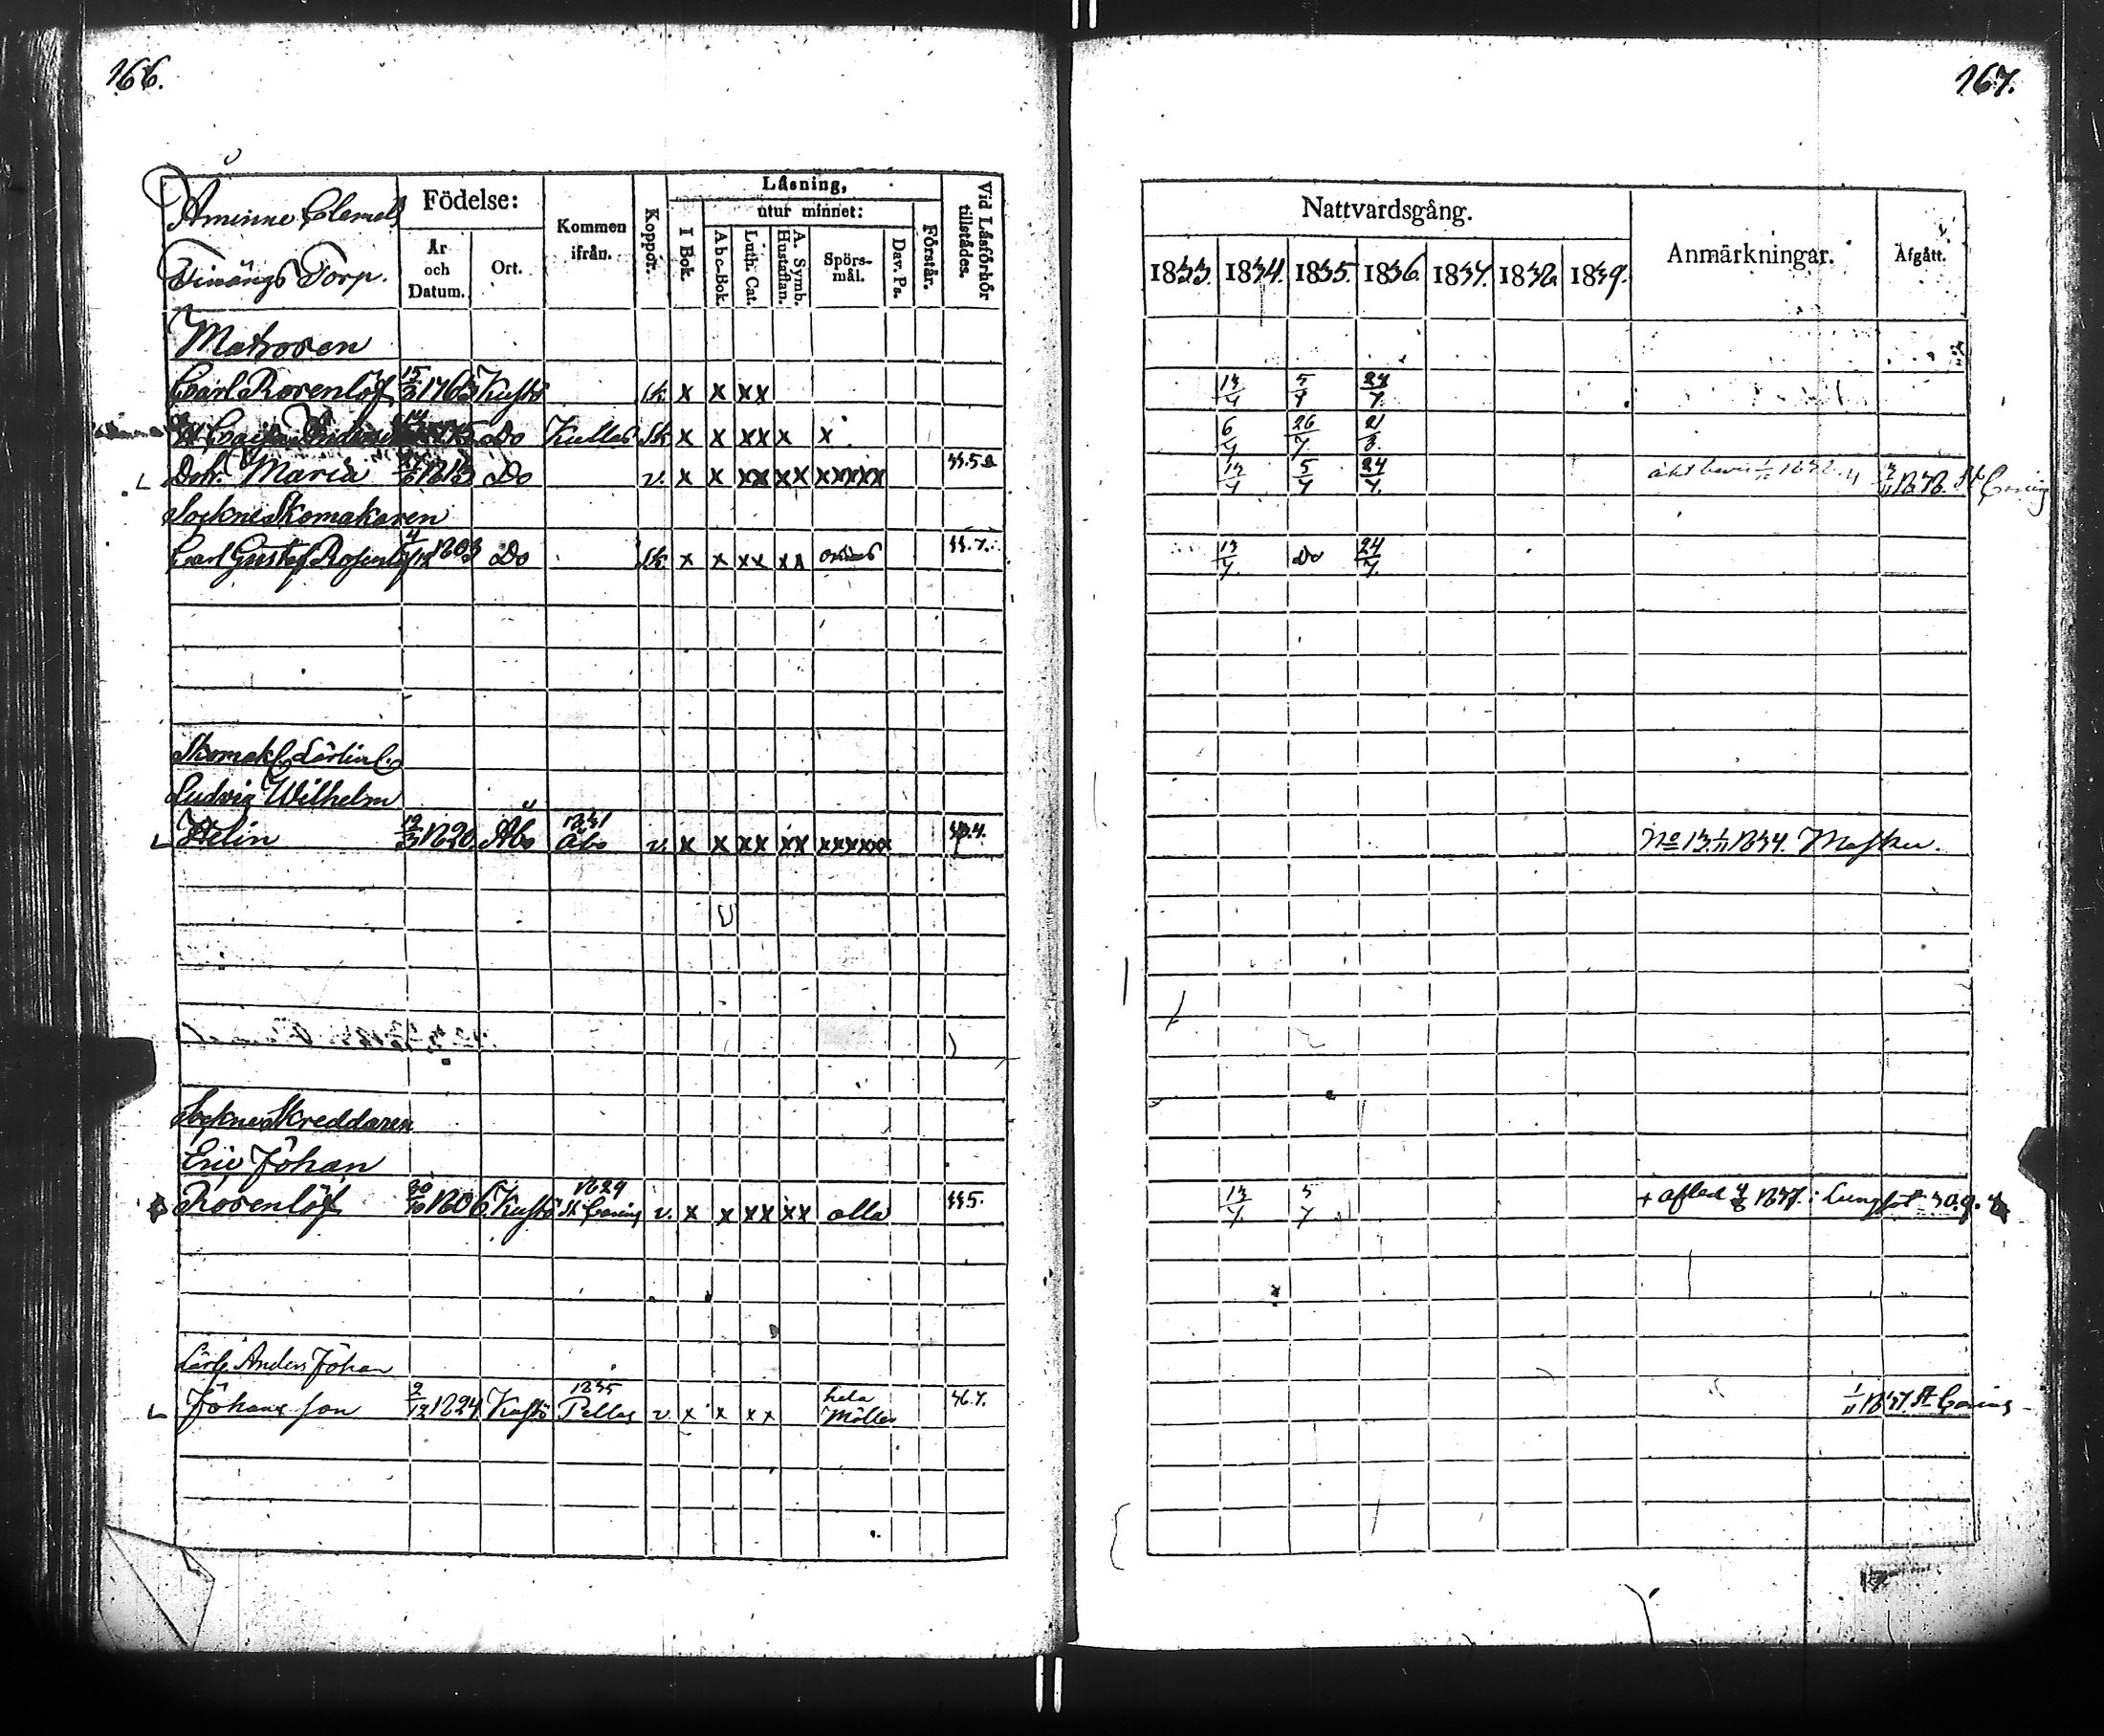 166.
Åminne Clemels
Timängs Torp.
Födelse:
År och Datum.
Ort.
Kommen ifrån.
Koppor.
Läsning,
I Bok.
utur minnet:
Abc-Bok.
Luth. Cat.
A. Symb. Hustaflan.
Spörs-mål.
Dav. Ps.
Förstår.
Vid Läsförhör tillstädes.
Matrosen
Carl Rosenlöf 15/3 1763 Kustö sk x x xx
Do Kullas sk x x xx x x
Dotr. Maria 1813 Do v. x x xx xx xxxxx 33.5.
Sockne Skomakaren
Carl Gustaf Rosenlöf 4/12 1803 Do sk x x xx xx 33.7.
Skomak. Lärling
Ludvig Wilhelm
Helin 12/3 1820 Åbo 1831 Åbo v. x x xx xx xxxxxx
Sockne Skreddaren
Eric Johan
Rosenlöf 30/10 1806 Kustö 1829 St. Carins v. x x xx xx alla 335.
Lärl. Anders Johan
Johansson 2/12 1824 Kustö 1835 Pellas v x x xx hela Möller 36.7.
167.
Nattvardsgång.
Anmärkningar.
Afgått.
1833. 1834. 1835. 1836. 1837. 1838. 1839.
13/4 5/7 24/7
6/4 26/7. 21/8.
13/4 5/7 24/7. 1838. St Carins
13/4. Do 24/7.
No 13 1/11 1834. Masku.
13/4. 5/7 + afled 4/8 1837. i lungsot 30.9.
1/11 1837 St Carins